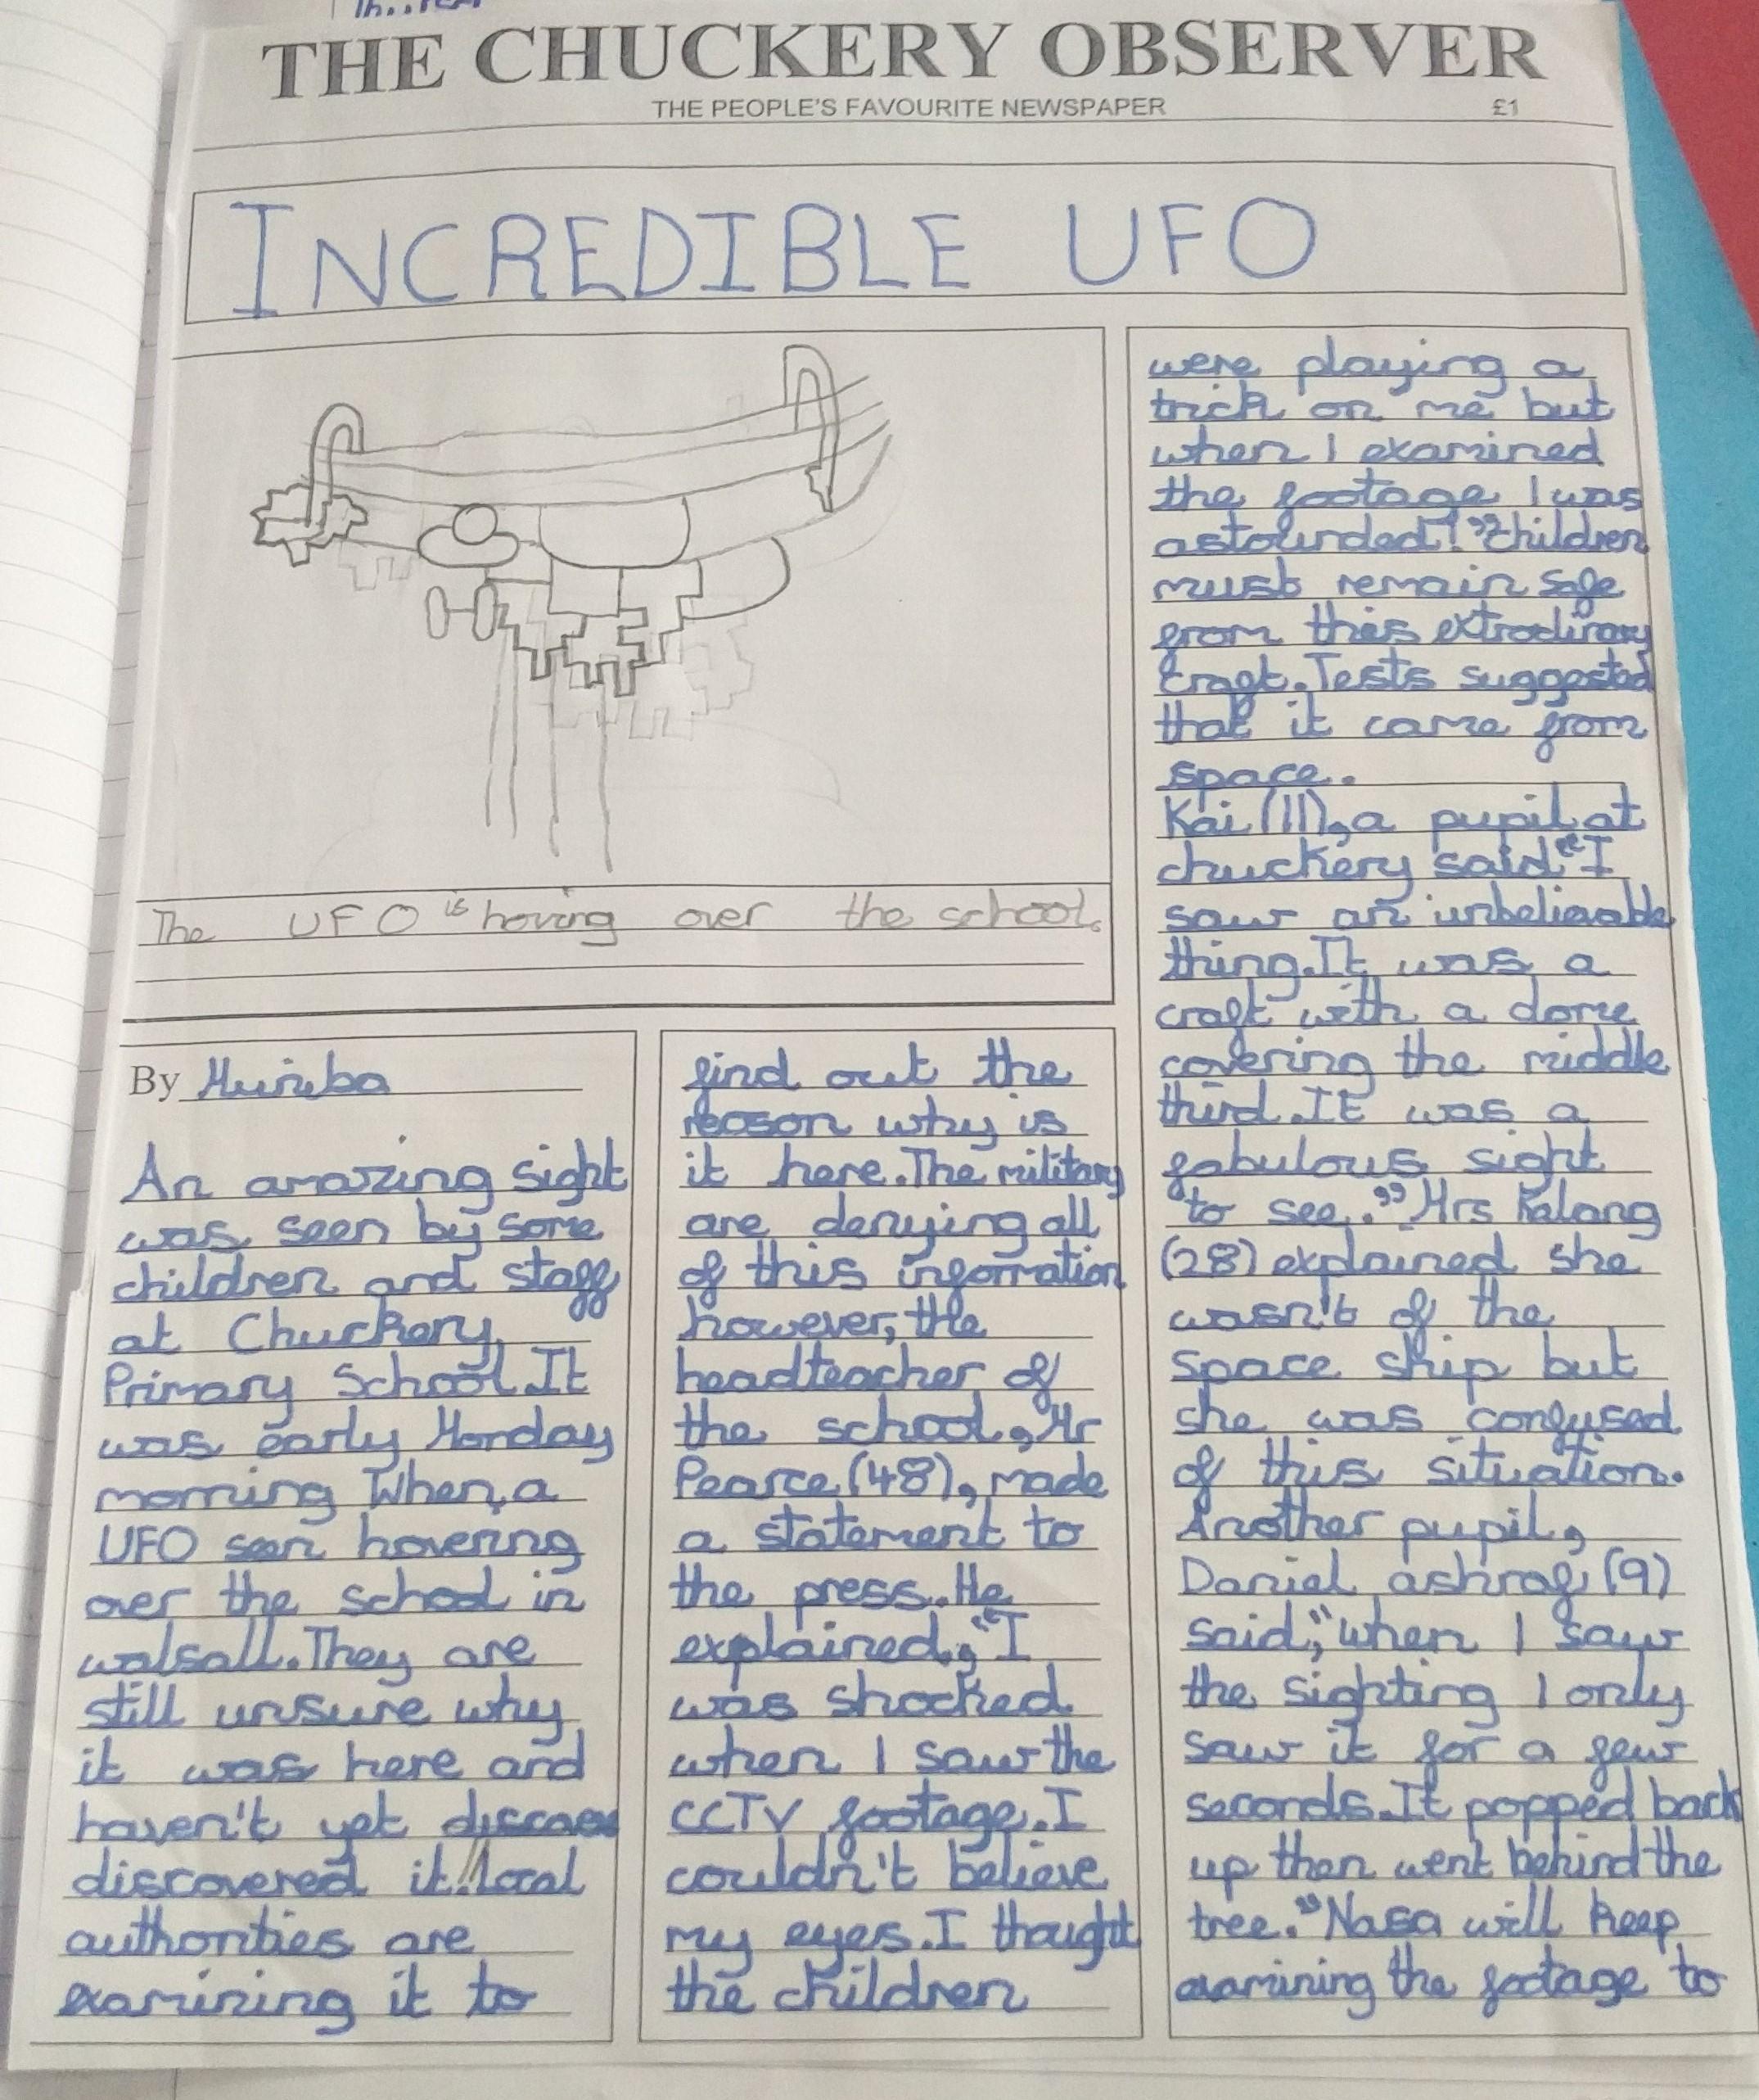 THE CHUCKERY OBSERVER
THE PEOPLE'S FAVOURITE NEWSPAPER £1
INCREDIBLE UFO
The UFO is hoving over the school.
By Muniba
An amazing sight
was seen by some
children and staff
at Chuckery
Primary School. It
was early Monday
morning When, a
UFO seen hovering
over the school in
walsall. They are
still unsure why
it was here and
haven't yet
discovered it. // local
authorities are
examining it to
find out the
reason why is
it here. The military
are denying all
of this information
however, the
headteacher of
the school, Mr
Pearce (48), made
a statement to
the press. He
explained, "I
was shocked
when I saw the
CCTV footage. I
couldn't believe
my eyes. I thought
the children
were playing a
trick on me but
when I examined
the footage I was
astounded!" children
must remain safe
from this extrodinary
craft. Tests suggested
that it came from
space.
Kai (11), a pupil at
chuckery said "I
saw an unbelievable
thing. It was a
craft with a dome
covering the middle
third. It was a
fabulous sight
to see." Mrs Kalang
(28) explained she
wasn't of the
space ship but
she was confused
of this situation.
Another pupil,
Daniel ashraf (9)
said, "when I saw
the sighting I only
saw it for a few
seconds. It popped back
up then went behind the
tree." Nasa will keep
examining the footage to